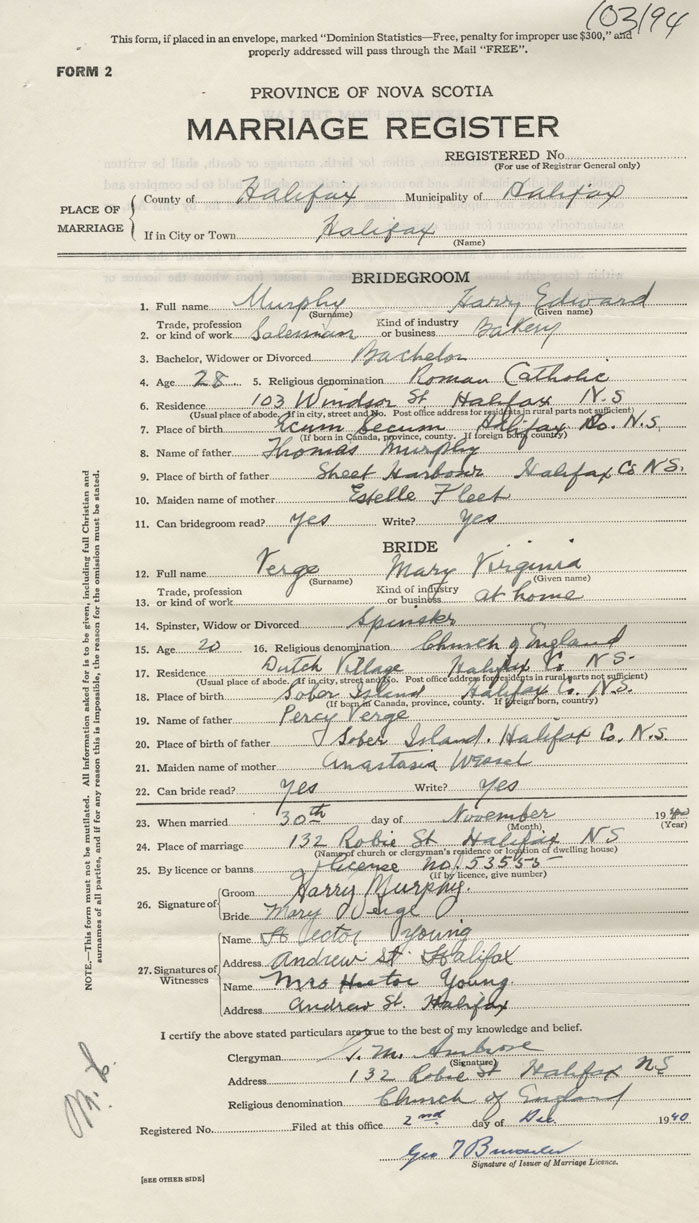 103/94
This form, if placed in an envelope, marked "Dominion Statistics—Free, penalty for improper use $300," and
properly addressed will pass through the Mail "FREE".
FORM 2
PROVINCE OF NOVA SCOTIA
MARRIAGE REGISTER
REGISTERED No.
(For use of Registrar General only)
PLACE OF MARRIAGE
County of Halifax Municipality of Halifax
If in City or Town Halifax
(Name)
BRIDEGROOM
1. Full name Murphy Harry Edward
(Surname) (Given name)
2. Trade, profession or kind of work Salesman Kind of industry or business Bakery
3. Bachelor, Widower or Divorced Bachelor
4. Age 28 5. Religious denomination Roman Catholic
6. Residence 103 Windsor St Halifax N.S
(Usual place of abode. If in city, street and No. Post office address for residents in rural parts not sufficient)
7. Place of birth Ecum Secum Halifax Co. N.S.
(If born in Canada, province, county. If foreign born, country)
8. Name of father Thomas Murphy
9. Place of birth of father Sheet Harbour Halifax Co N.S.
10. Maiden name of mother Estelle Fleet
11. Can bridegroom read? yes Write? yes
BRIDE
12. Full name Verge Mary Virginia
(Surname) (Given name)
13. Trade, profession or kind of work Kind of industry or business at home
14. Spinster, Widow or Divorced Spinster
15. Age 20 16. Religious denomination Church of England
17. Residence Dutch Village Halifax Co N.S.
(Usual place of abode. If in city, street and No. Post office address for residents in rural parts not sufficient)
18. Place of birth Sober Island Halifax Co. N.S.
(If born in Canada, province, county. If foreign born, country)
19. Name of father Percy Verge
20. Place of birth of father Sober Island. Halifax Co. N.S.
21. Maiden name of mother Anastasia
22. Can bride read? yes Write? yes
23. When married 30th day of November 19
(Month) (Year)
24. Place of marriage 132 Robie St Halifax N S
(Name of church or clergyman's residence or location of dwelling house)
25. By licence or banns License No. 53555
(If by licence, give number)
26. Signature of
Groom Harry Murphy.
Bride Mary Verge
27. Signatures of Witnesses
Name Hector Young
Address Andrew St. Halifax
Name Mrs Hector Young
Address Andrew St. Halifax
I certify the above stated particulars are true to the best of my knowledge and belief.
Clergyman T. M. Ambrose
(Signature)
Address 132 Robie St Halifax N S
Religious denomination Church of England
Registered No. Filed at this office 2nd day of Dec. 1940
Geo
Signature of Issuer of Marriage Licence.
[SEE OTHER SIDE]
NOTE.—This form must not be mutilated. All information asked for is to be given, including full Christian and
surnames of all parties, and if for any reason this is impossible, the reason for the omission must be stated.